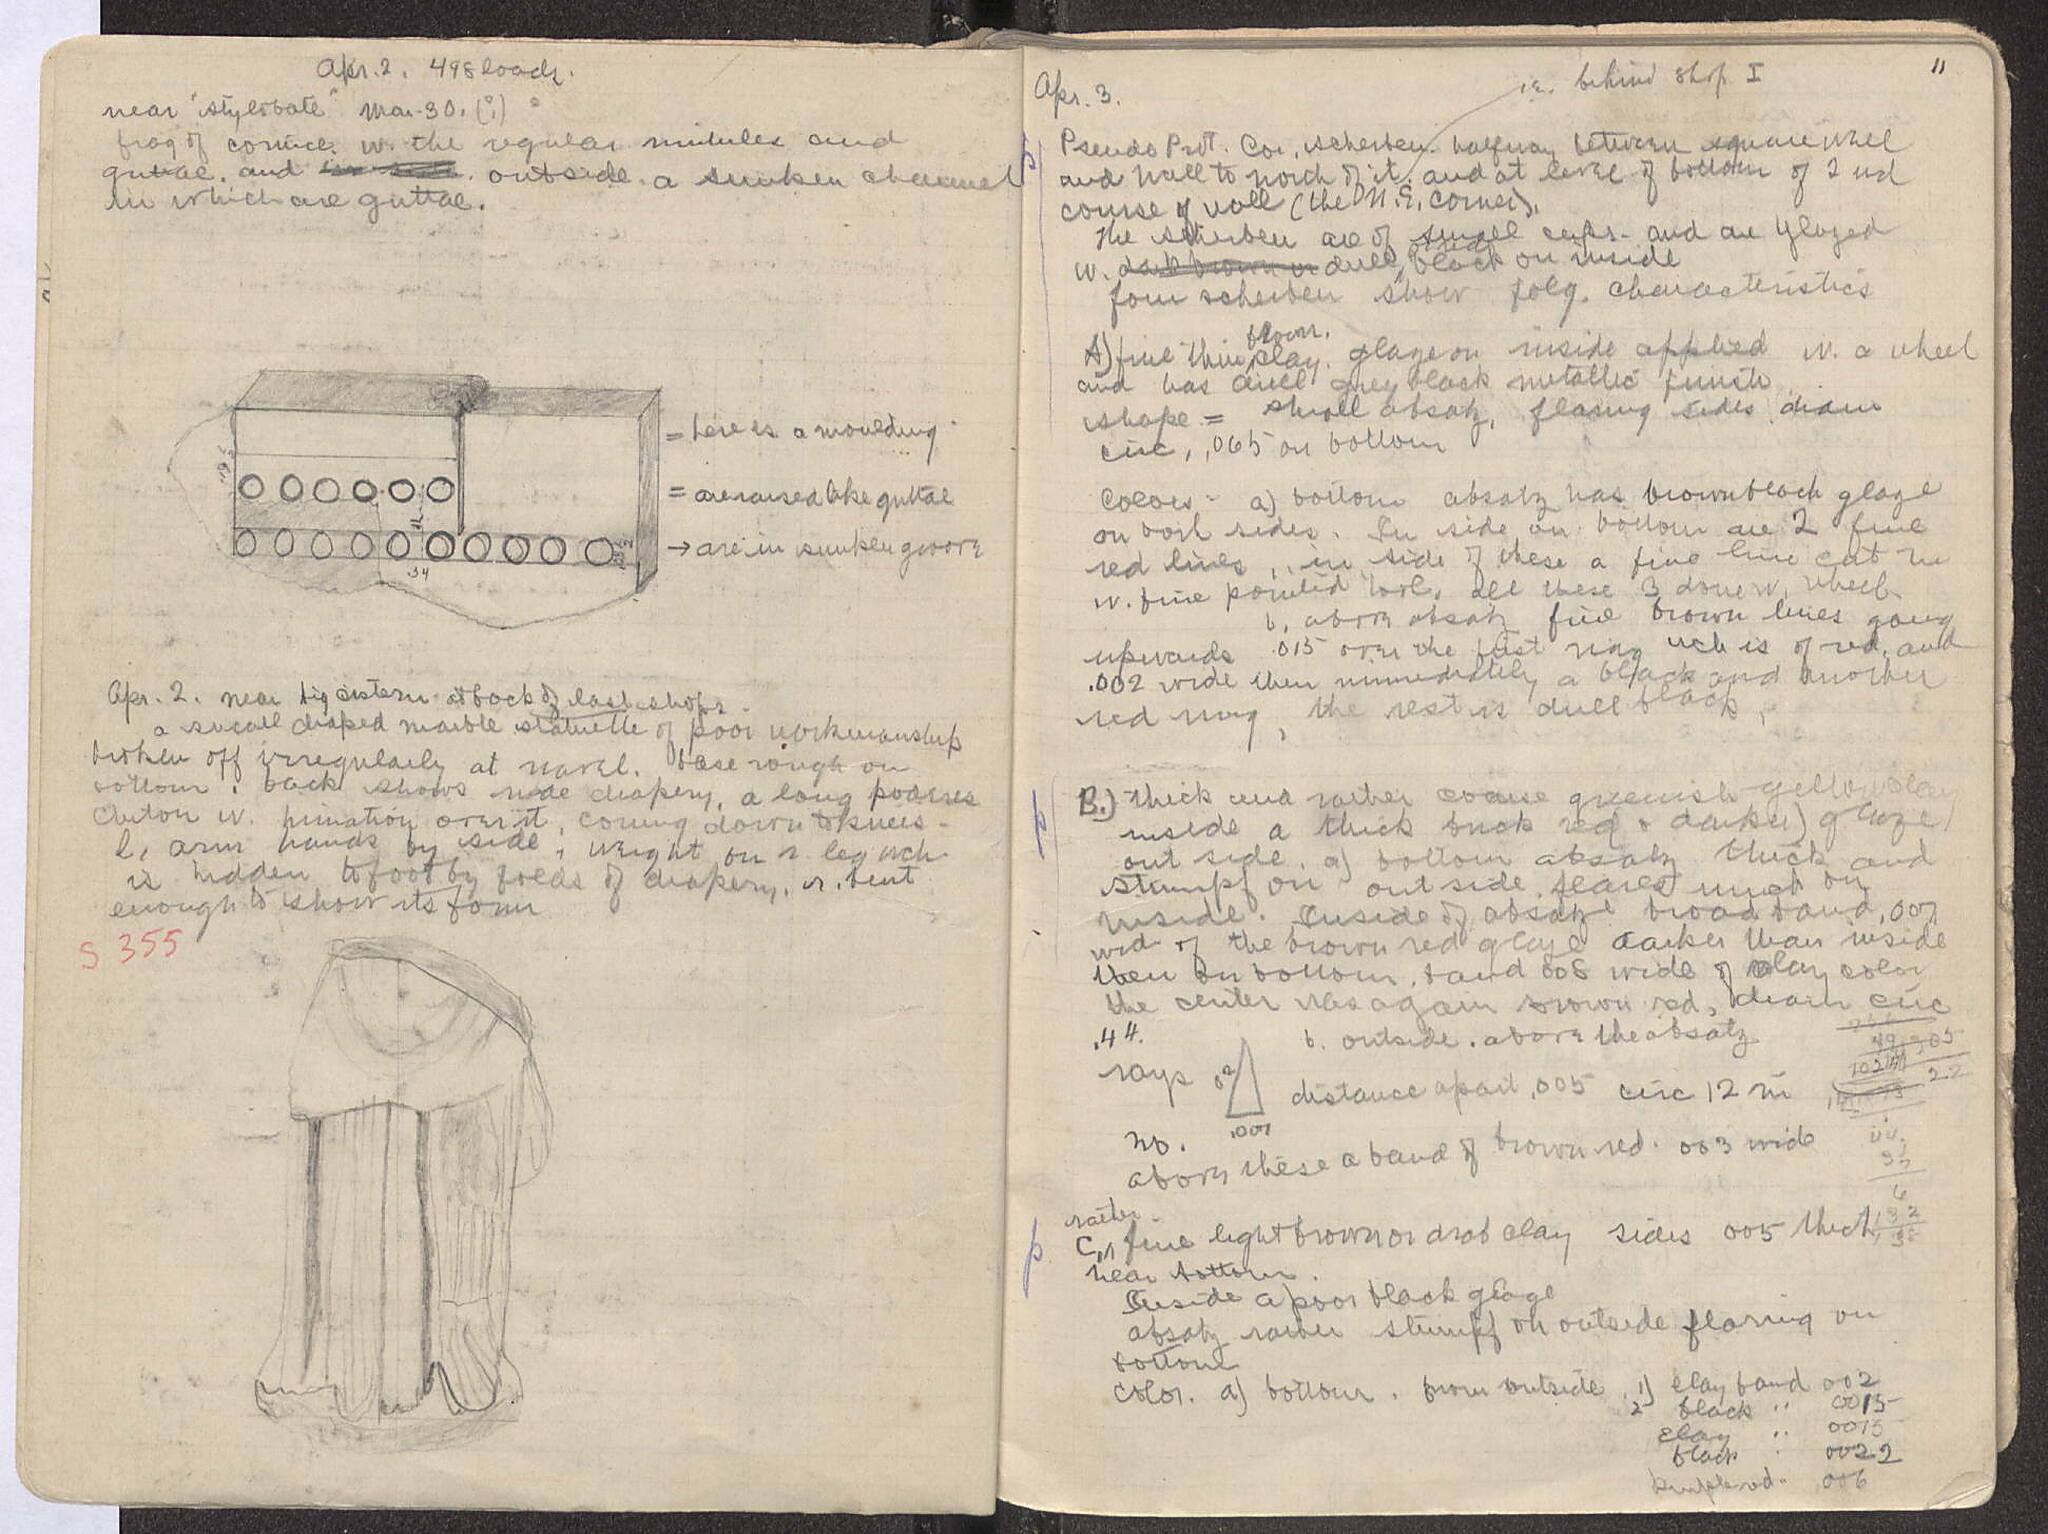 Apr. 2. 498 loads.
near "stylobate" Mar. 30. (?)
frag of cornice. w. the regular mutules and
guttae. and outside. a sunken channel
in which are guttae.
= here is a moulding
= are raised like guttae
→ are in sunken groove
34
Apr. 2. near big cistern at back of last shops.
a small draped marble statuette of poor workmanship
broken off irregularly at navel. base rough on
bottom. back shows no drapery, a long
chiton w. himation over it, coming down to knees.
l. arm hands by side, weight on r leg wch
is hidden to foot by folds of drapery. r. bent
enough to show its form
S 355
11
Apr. 3.
i.e. behind shop I
Pseudo Prot. Cor. scherben. halfway between square
and wall to north of it. and at level of bottom of 2nd
course of wall (the N.E. corner).
The scherben are of small cups and are glazed
w. dark brown or dull black on inside
four scherben show folg. characteristics
brown.
A) fine thin clay. glaze on inside applied w. a wheel
and has dull grey black metallic finish.
shape = small absatz, flaring sides diam
circ, .065 on bottom
Colors - a) bottom absatz has brown black glaze
on both sides. In side on bottom are 2 fine
red lines, in side of these a fine line cut in
w. fine pointed tool, all these 3 done w. wheel.
b. above absatz fine brown lines going
upwards .015 over the first ring wch is of red, and
.002 wide then immediately a black and another
red ring, the rest is dull black,
B.) thick and rather coarse greenish yellow clay
inside a thick brick red (darker) glaze
out side. a) bottom absatz thick and
stumpf on outside, flares much on
inside. Inside of absatz broad band, .007
wid of the brown red glaze darker than inside
then on bottom, band 008 wide of clay color
the center was again brown red, diam circ
.44. b. outside. above the absatz
rays .02 .007 distance apart .005 circ 12 in
no.
above these a band of brown red. 003 wide
rather
C. fine light brown or drab clay sides 005 thick
near bottom.
Inside a poor black glaze
absatz rather stumpf on outside flaring on
bottom
color. a) bottom. from outside. 1) clay band 002
2 black " 0015
clay " 0015
black " 0022
purple red " 006